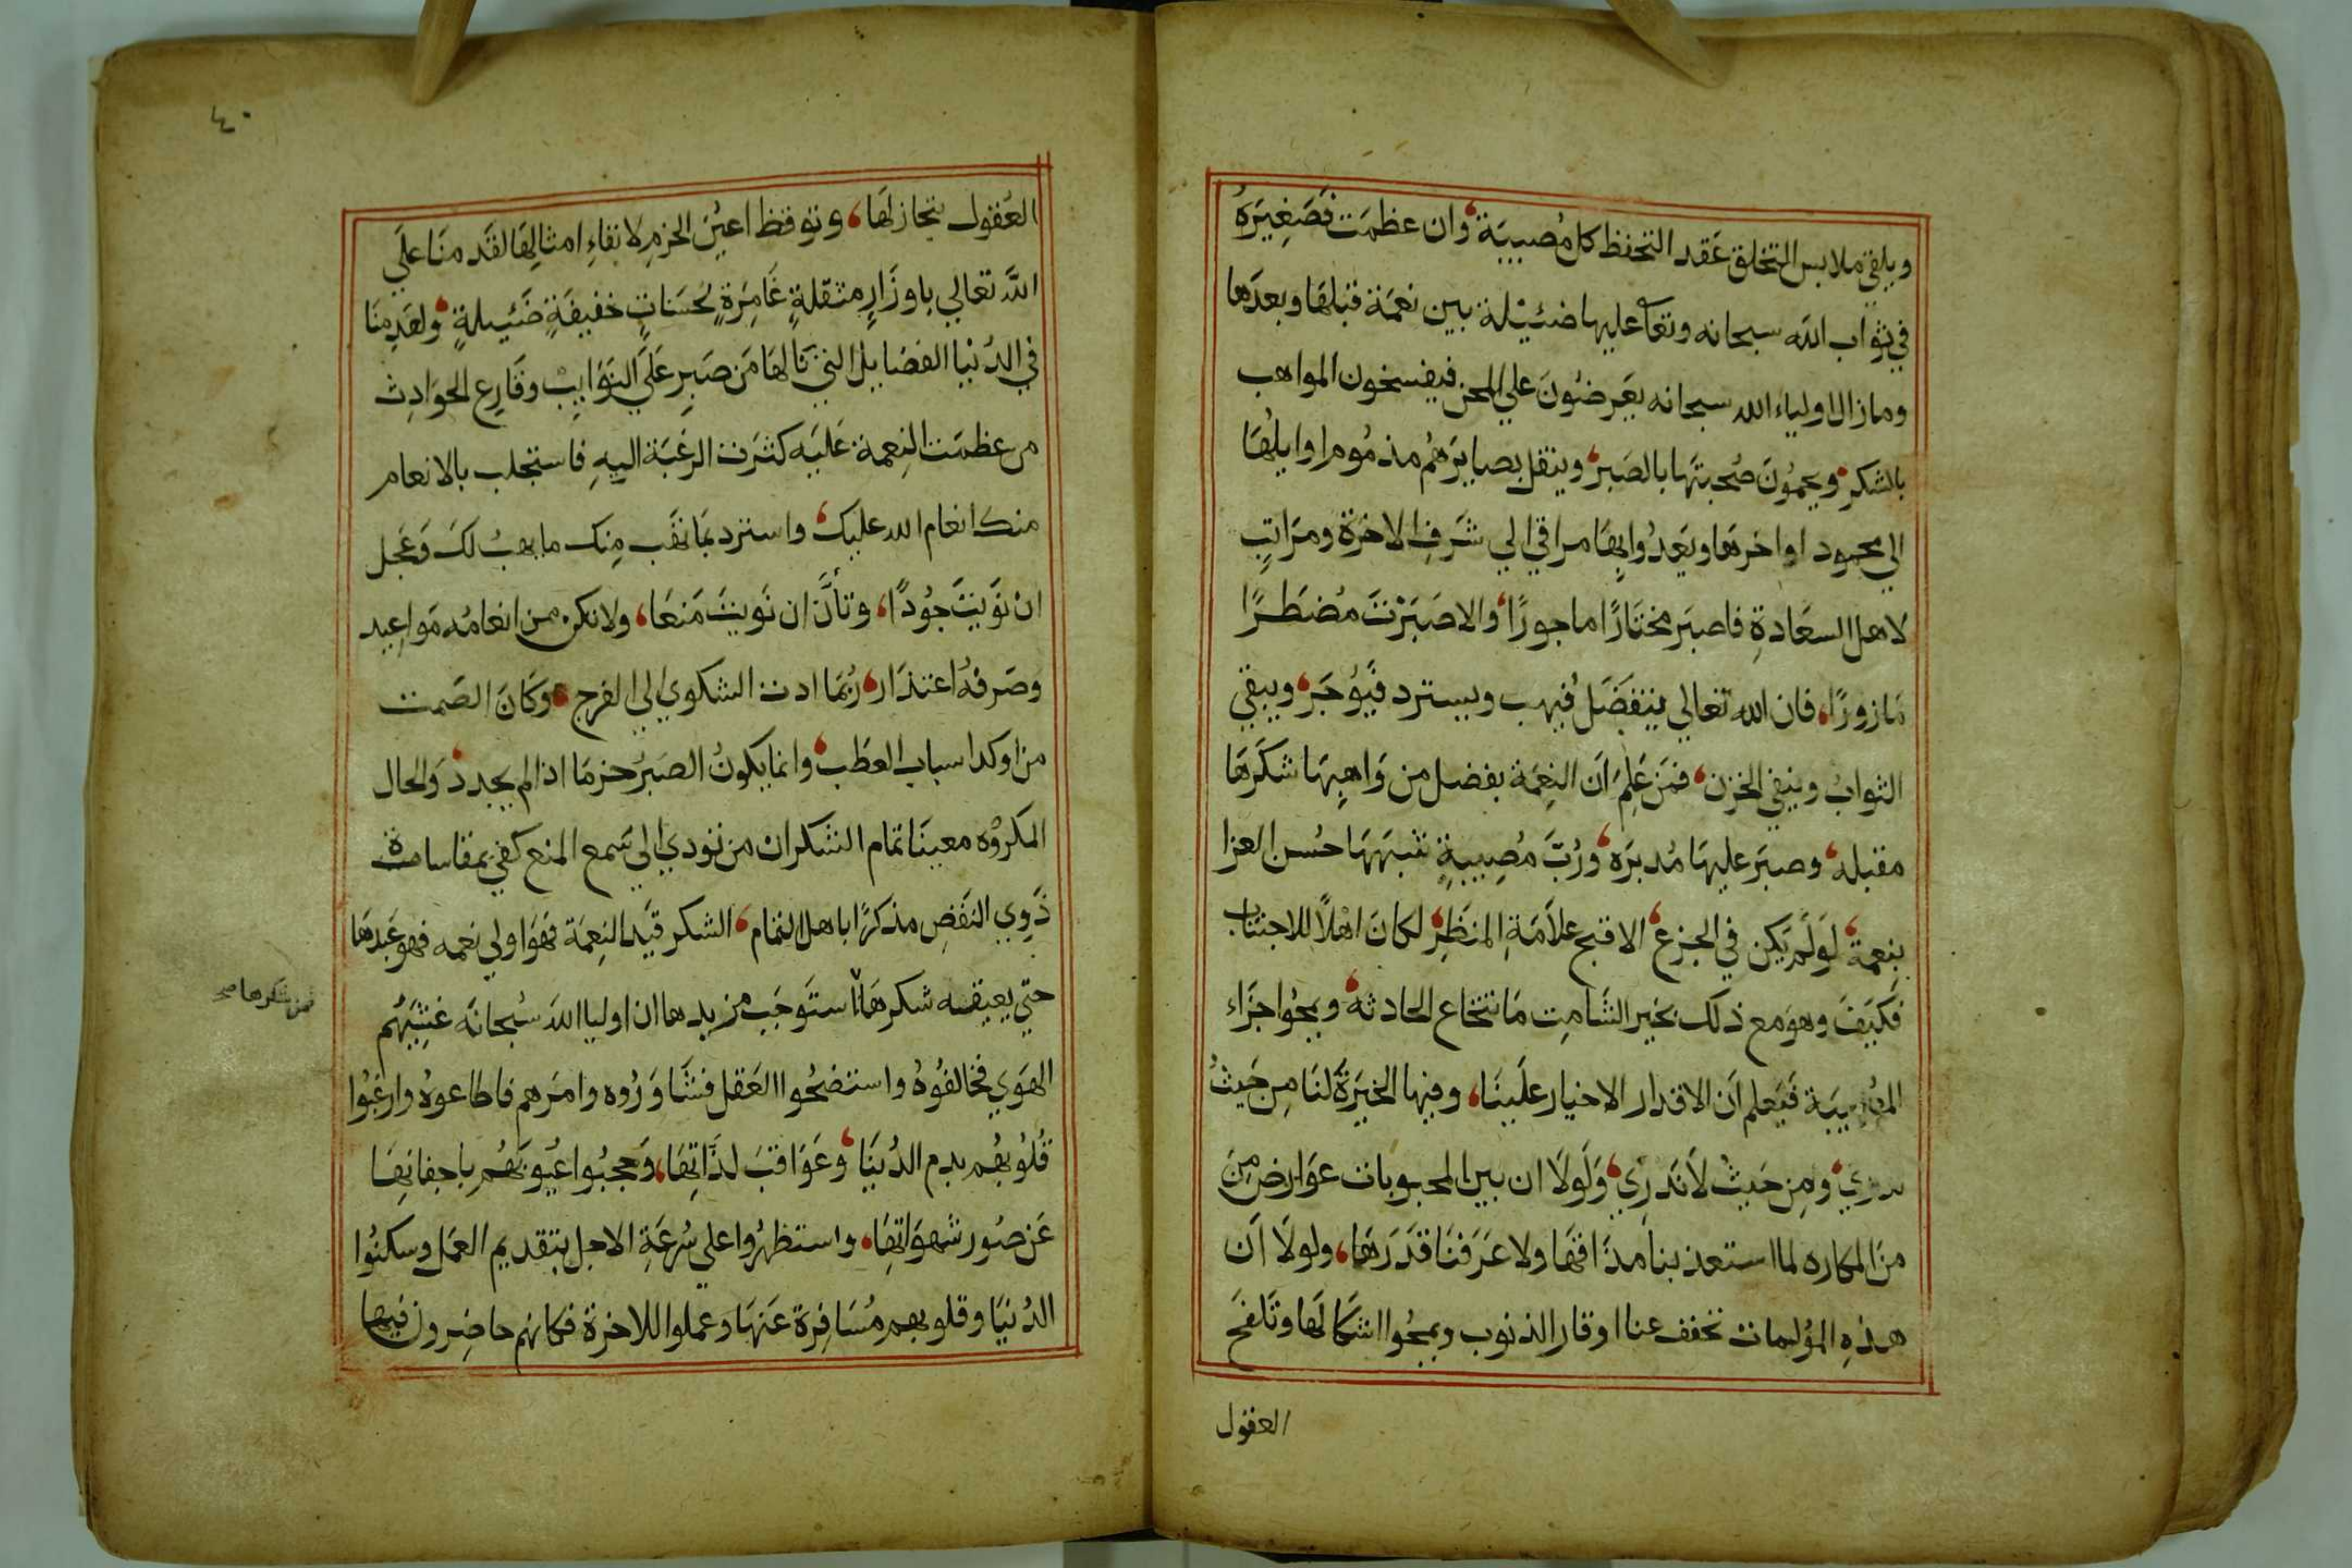 ويلقي ملابس التخلق عَقد التحفظ كل مُصيبَة وان عظمَت فصَغِيَرهُ
في ثوَاب الله سبحانه وتعا عليها ضئيْلة بين نعمَة قبلهَا وبعدَها
ومازال اولياء الله سبحانه يعَرضُونَ علي المحن فيفسخون المواهب
بالشكرِ ويحمُونَ صُحبتَها بالصَبر وينقل بصايرَهُم مذمُوم اوايلُهَا
الي محمود اواخرهَا ويَعَدُوا بهَا مراقي الي شَرَفِ الاخرَة ومرَاتِب
لاهل السعَادةِ فاصبَر مختَارًا ماجورًا والا صَبَرْتَ مُضطَرًا
مَازورًا، فان الله تعَالي يتفَضَلُ فيهب ويسترد فيُؤجَر ويبقي
الثوابُ وينفي الحزن فمَن عَلِمَ اَن النِعمَة بفضل من وَاهِبهَا شكَرهَا
مقبله وصبَر عليهَا مُدبرَه ورُبَّ مُصِيبةٍ شبهَهَا حُسن العزا
بنعمةٍ لوَلَم يَكن في الجزع الا قبح علاَمَةِ المنظَرِ لكانَ اهْلاً للاجتناب
فَكيَفَ وهوَ مع ذلك يخبر الشَامِت مَا تنتخاع الحادثه ويمحُوا جزَاء
المُصيبَة فنَعلم اَن الاقدار الاخيار علَينَا، وفيها الخيَرةُ لنَا مِن حَيثُ
ندري ومِن حَيثُ لاَ نَدري وَلَولاَ ان بين المحبوبات عوَارض مِن
منَ المكاره لما استعذبنا مذَاقهَا ولا عَرَفنَا قَدَرَهَا، ولولاَ اَن
هذهِ المؤلمات تخفف عنا اوقار الذنوب ويمحُوا اشكالهَا وتَلفحَ
العقول
٤٠
العُقول بتجازلهَا، وتوقظ اعيُن الحزمِ لاتقاءِ امثالِهَا لقَد منَا علَي
اللَّه تعَالي باوزَارٍ مثقلةٍ غَامِرَةٍ لحُسَناتٍ خفيفَةٍ ضَئيلةٍ ولعَدِمنَا
في الدُنيَا الفضَايل التي نَالهَا مَن صَبرِ عَلَي النوَايبْ وقَارِع الحوَادِث
من عظمَت النِعمة عَليَه كثرَت الرغبَة اليهِ فاستجلب بالانعام
منك انعام الله عليك واستزد بمَا نهَب مِنك ما يهبُ لَك وَعَجل
انْ نَوَيتَ جُودًا، وتأنَّ ان نَويتَ مَنعَا، ولا تكن من انعامُه مَواعِيد
وصَرفهُ اعتذَار رُبمَا ادت الشكوي الي الفرج وَكانَ الصَمت
من اوكد اسباب العطَب وانما يكونُ الصَبُر حزمَا اذا لم يجدد وَالحال
المكروُه معينَا تمام الشكران من نودي الي سَمع المنع كفي بمقاسَاة
ذَوِي النقَصِ مذكرًا باهل التمَام الشكر قَيد النِعمَة فهوَا ولي نعمه فهو عَبدهَا
حتي يعيقه شكرهَا استَوجَب مزيدها ان اوليا اللهَ سُبحانَه غشِيَهُم
فمن شكرها صح
الهَوَي فخالفوُهُ واستنصحُوا العَقل فشَاوَرُوه وامَرهم فاطاعوهُ وارغبُوا
قُلُوبهُم بدم الدُنيَا وَعَوَاقبَ لذَّاتِهَا، وَحجبُوا عيُونهُم باجفانِهَا
عَن صُور شهوَاتهَا، واستظهرُوا علي سُرعَةِ الاجل بتقديم العمَل وسكنُوا
الدُنيَا وقلوبهم مُسَافِرَة عَنهَا وعملوا للاخرة فكانهم حاضِرون فيها